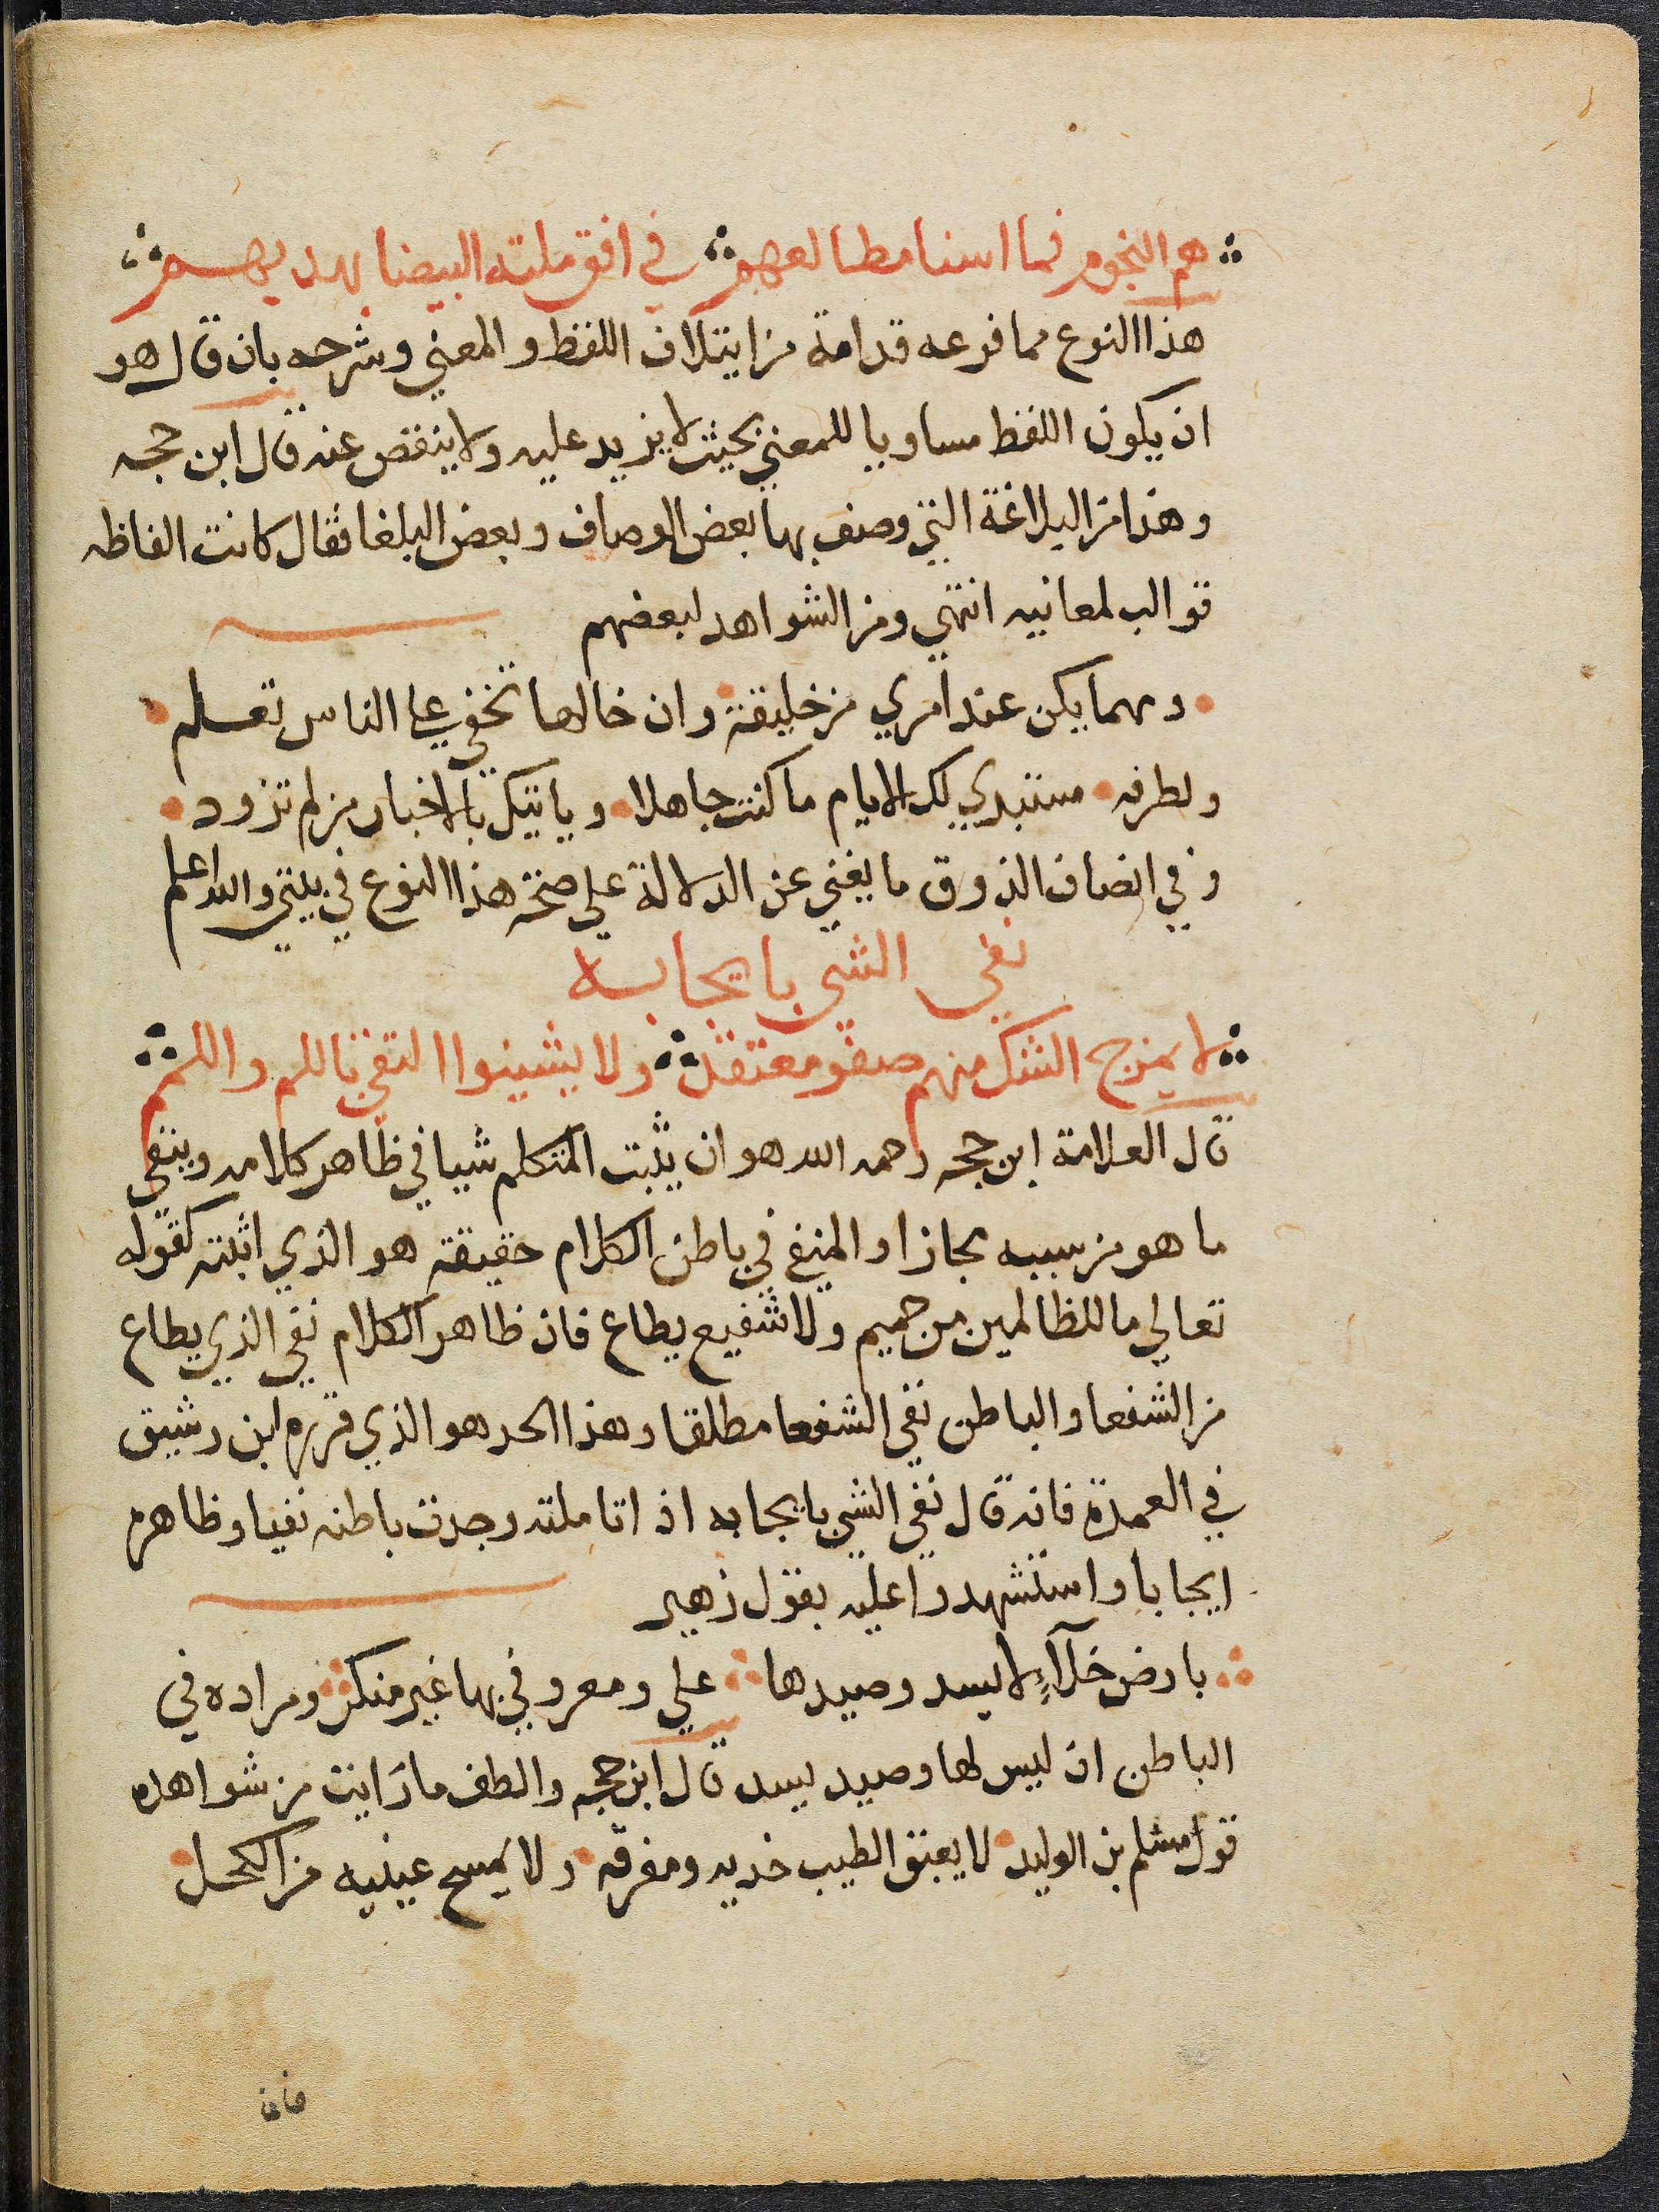 هم النجوم فما اسنا مطالعهم في افق ملته البيضا بهديهم
هذا النوع مما فرعه قدامة من ايتلاف اللفظ والمعني وشرحه بان قال هو
ان يكون اللفظ مساويا للمعني بحيث لا يزيد عليه ولا ينقص عنه قال ابن حجه
وهذا من البلاغة التي وصف بها بعض الوصاف وبعض البلغا فقال كانت الفاظه
قوالب لمعانيه انتهي ومن الشواهد لبعضهم
ومهما يكن عند امري من خليقة وان خالها تخفي علي الناس تعلم
ولطرفه ستبدي لك الايام ما كنت جاهلا وياتيك بالاخبار من لم تزود
وفي انصاف الذوق ما يغني عن الدلالة علي صحة هذا النوع في بيتي والله اعلم
نفي الشي بايجابه
لا يمزج الشك منهم صفو معتقد ولا يشينوا التقي باللم واللمم
قال العلامة ابن حجه رحمه الله هو ان يثبت المتكلم شيا في ظاهر كلامه وينفي
ما هو من سببه مجازا والمنفي في باطن الكلام حقيقة هو الذي اثبته كقوله
تعالي ما للظالمين من حميم ولا شفيع يطاع فان ظاهر الكلام نفي الذي يطاع
من الشفعا والباطن نفي الشفعا مطلقا وهذا الحد هو الذي قرره ابن رشيق
في العمدة فانه قال نفي الشي بايجابه اذا تاملته وجدت باطنه نفيا وظاهره
ايجابا واستشهدوا عليه بقول زهير
بارض خلآءٍ لا يسد وصيدها علي ومعروفي بها غير منكر ومراده في
الباطن ان ليس لها وصيد يسد قال ابن حجه والطف ما رايت من شواهده
قول مسلم بن الوليد لا يعبق الطيب خديه ومفرقه ولا يمسح عينيه من الكحل
فان